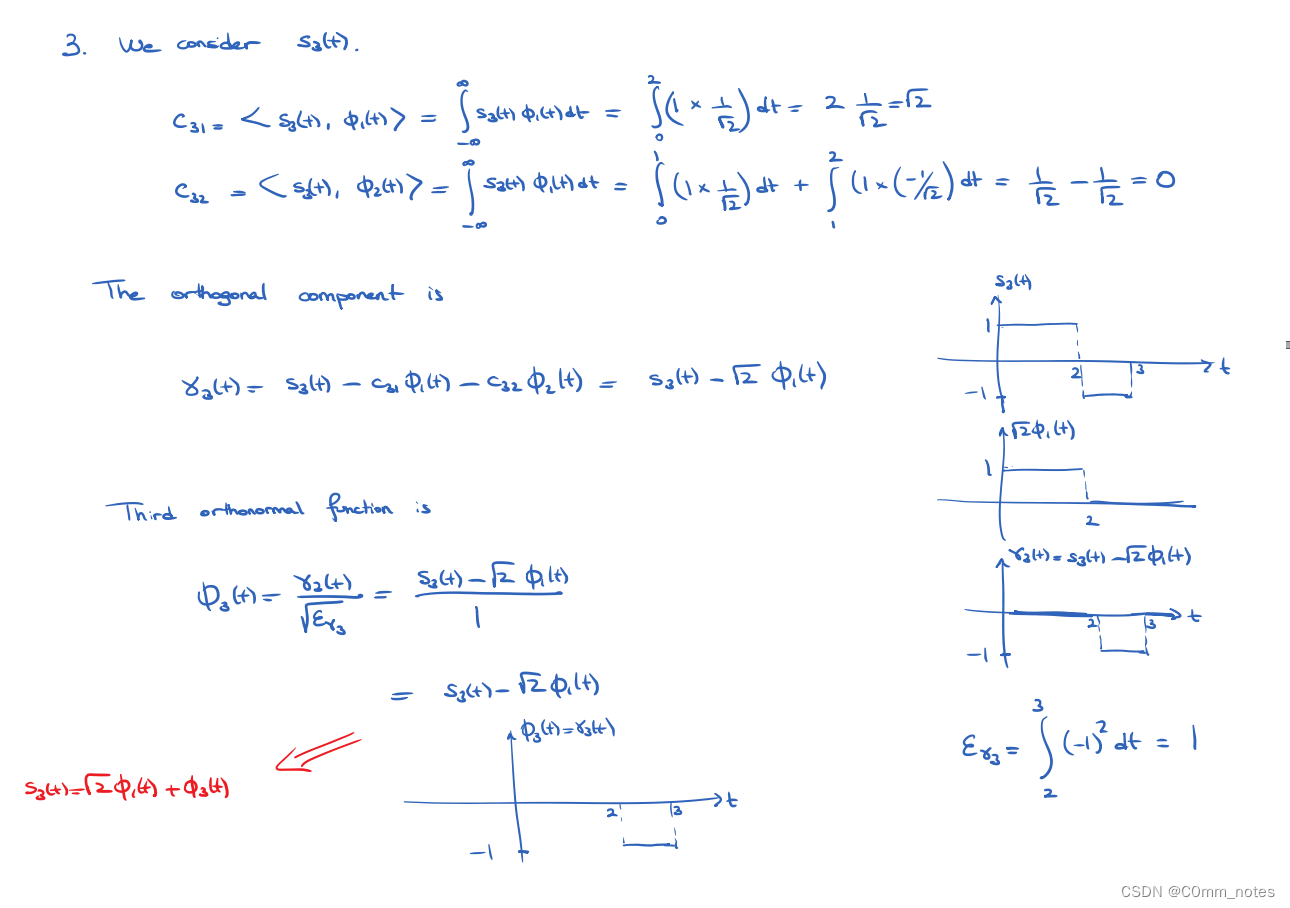 3. We consider s₃(t).
C₃₁ = < s₃(t), ϕ₁(t) > = ∫_{-∞}^{∞} s₃(t) ϕ₁(t) dt = ∫_0^2 (1 × 1/√2) dt = 2 1/√2 = √2
C₃₂ = < s₃(t), ϕ₂(t) > = ∫_{-∞}^{∞} s₃(t) ϕ₁(t) dt = ∫_0^1 (1 × 1/√2) dt + ∫_1^2 (1 × (-1/√2) dt = 1/√2 - 1/√2 = 0
The orthogonal component is
γ₃(t) = s₃(t) - C₃₁ ϕ₁(t) - C₃₂ ϕ₂(t) = s₃(t) - √2 ϕ₁(t)
Third orthonormal function is
ϕ₃(t) = γ₃(t) / √ε_{γ₃} = (s₃(t) - √2 ϕ₁(t)) / 1
= s₃(t) - √2 ϕ₁(t)
ϕ₃(t) = γ₃(t)
2 3 t
-1
s₃(t) = √2 ϕ₁(t) + ϕ₃(t)
s₃(t)
1
2 3 t
-1
√2 ϕ₁(t)
1
2
γ₃(t) = s₃(t) - √2 ϕ₁(t)
2 3 t
-1
ε_{γ₃} = ∫_2^3 (-1)² dt = 1
CSDN @C0mm_notes